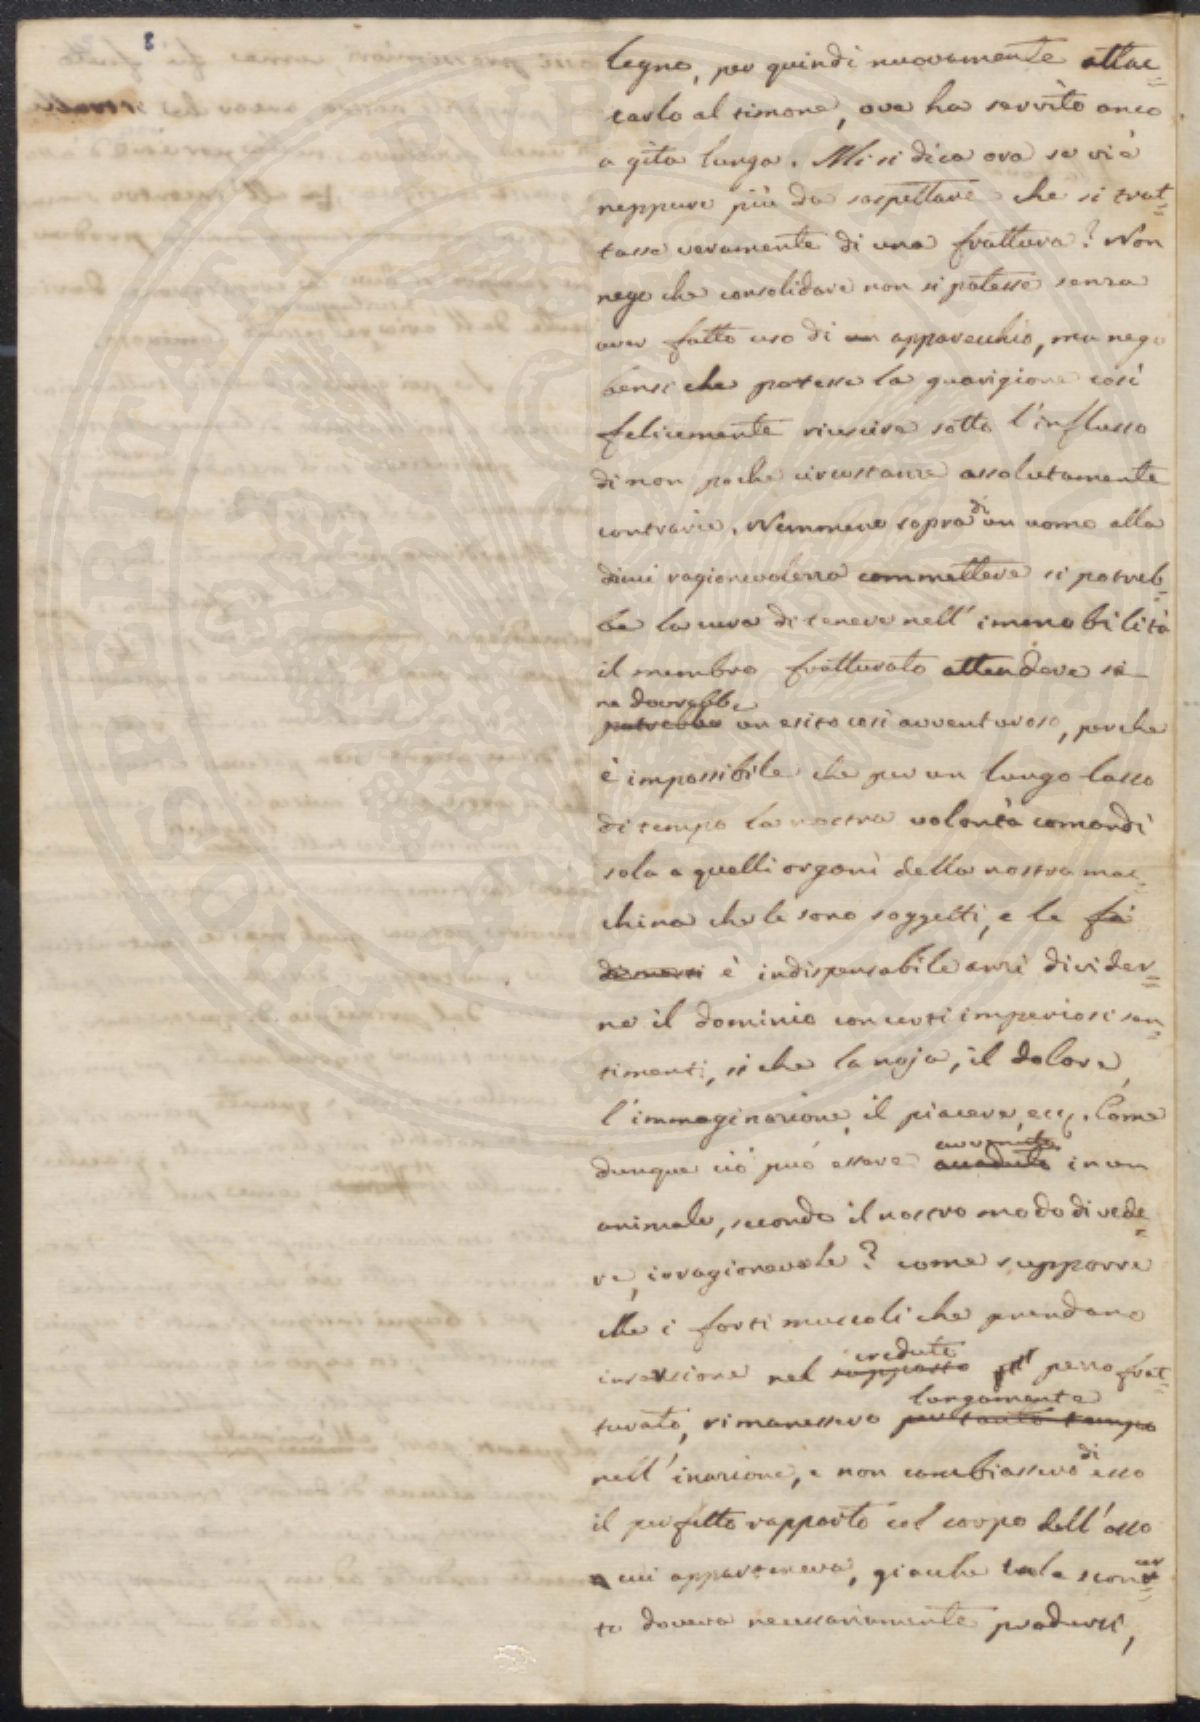 8
legno, per quindi nuovamente attac=
carlo al timone, ove ha servito anco
a gita lunga. Mi si dica ora se vi è
neppure più da sospettare che si trat=
tasse veramente di una frattura? Non
nego che consolidare non si potesse senza
aver fatto uso di un apparecchio, ma nego
bensì che potesse la guarigione così
felicemente riuscire sotto l'influsso
di non poche circostanze assolutamente
contrarie. Nemmeno sopra di un uomo alla
di cui ragionevolezza commettere si potreb=
be la cura di tenere nell'immobilità
il membro fratturato attendere si
ne dovrebbe
potrebbe un esito così avventuroso, perche
è impossibile che per un lungo lasso
di tempo la nostra volontà comandi
sola a quelli organi della nostra mac=
china che le sono soggetti, e le fa
di mezzi è indispensabile anzi divider=
ne il dominio con certi imperiosi sen=
timenti, si che la noja, il dolore,
l'immaginazione, il piacere, ecc. Come
dunque ciò può essere avvenuto accaduto in un
animale, secondo il nostro modo di vede=
re, irragionevole? come supporre
che i forti muscoli che prendano
inserzione nel creduto supposto pezzo frat=
turato, rimanessero lungamente per tanto tempo
nell'inazione, e non cambiassero di esso
il perfetto rapporto col corpo dell'osso
a cui apparteneva, giacche tale sconcer=
to doveva necessariamente prodursi,